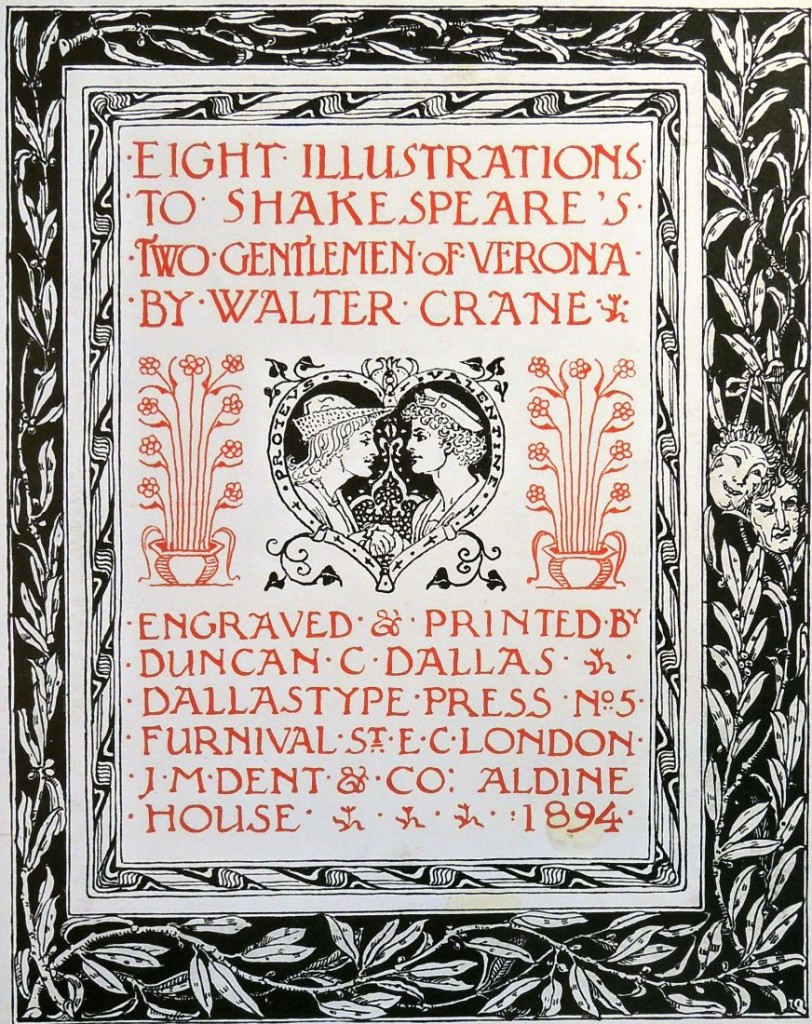 ·EIGHT· ILLUSTRATIONS·
·TO· SHAKESPEARE'S·
·TWO·GENTLEMEN·OF·VERONA·
·BY·WALTER·CRANE·
PROTEVS · VALENTINE
·ENGRAVED·&·PRINTED·BY
·DUNCAN·C·DALLAS·
·DALLASTYPE·PRESS·No.5·
·FURNIVAL·ST·E·C·LONDON·
·J·M·DENT·&·CO: ALDINE
·HOUSE· · · :1894·